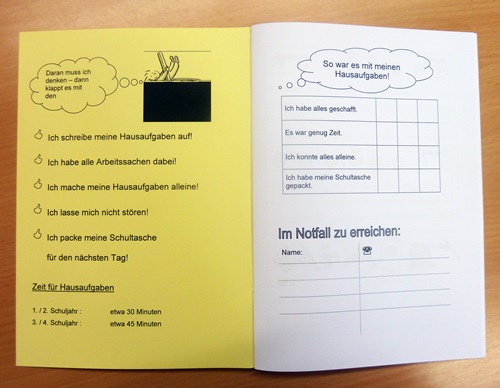 Daran muss ich
denken – dann
klappt es mit
den
Ich schreibe meine Hausaufgaben auf!
Ich habe alle Arbeitssachen dabei!
Ich mache meine Hausaufgaben alleine!
Ich lasse mich nicht stören!
Ich packe meine Schultasche
für den nächsten Tag!
Zeit für Hausaufgaben
1. / 2. Schuljahr : etwa 30 Minuten
3. / 4. Schuljahr : etwa 45 Minuten
So war es mit meinen
Hausaufgaben!
Ich habe alles geschafft.
Es war genug Zeit.
Ich konnte alles alleine.
Ich habe meine Schultasche
gepackt.
Im Notfall zu erreichen:
Name: ☎